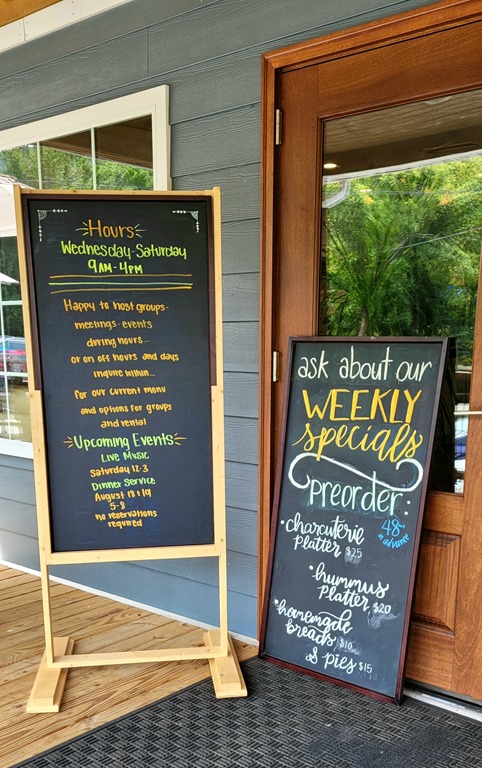 Hours
Wednesday-Saturday
9AM-4PM
Happy to host groups-
meetings-events
during hours...
or on off hours and days
inquire within...
for our current menu
and options for groups
and rental
Upcoming Events
Live Music
Saturday 12-3
Dinner Service
August 18 & 19
5-8
no reservations
required
ask about our
WEEKLY
specials
preorder:
48hr
in advance
•charcuterie
platter $25
•hummus
platter $20
•homemade
breads $10
& pies $15